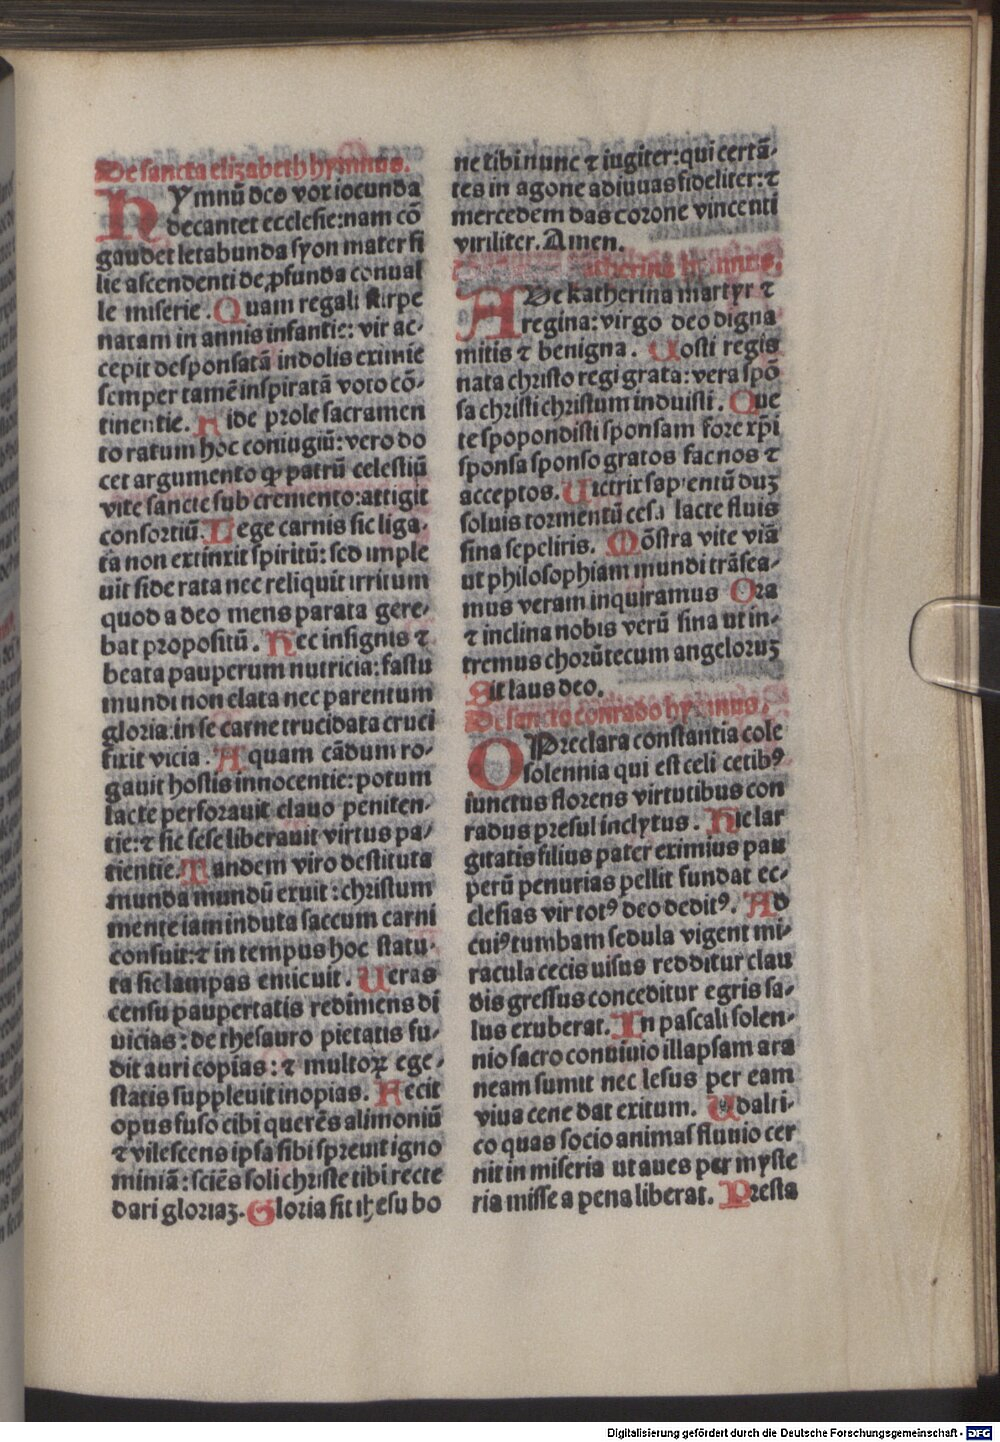 De sancta elizabeth hymnus.
HYmnū deo vox iocunda
decantet ecclesie: nam cō
gaudet letabunda syon mater fi
lie ascendenti de ꝓfunda conual
le miserie. Quam regali stirpe
natam in annis infantie: vir ac⸗
cepit desponsatā indolis eximie
semper tamē inspiratā voto cō⸗
tinentie. Fide prole sacramen
to ratum hoc coniugiū: vero do
cet argumento ꝙ patrū celestiū
vite sancte sub cremento: attigit
consortiū. Lege carnis sic liga⸗
ta non extinxit spiritū: sed imple
uit fide rata nec reliquit irritum
quod a deo mens parata gere⸗
bat propositū. Hec insignis ⁊
beata pauperum nutricia: fastu
mundi non elata nec parentum
gloria: in se carne trucidata cruci
fixit vicia. Aquam cādum ro⸗
gauit hostis innocentie: potum
lacte perforauit clauo peniten⸗
tie: ⁊ sic sese liberauit virtus pa⸗
tientie. Tandem viro destituta
munda mundū exuit: christum
mente iam induta saccum carni
consuit: ⁊ in tempus hoc statu⸗
ta sic lampas emicuit. Ueras
censu paupertatis redimens di
uicias: de thesauro pietatis fu⸗
dit auri copias: ⁊ multoꝝ ege⸗
statis suppleuit inopias. Fecit
opus fuso cibi querēs alimoniū
⁊ vilescens ipsa sibi spreuit igno
miniā: sciēs soli christe tibi recte
dari gloriaꝫ. Gloria sit ihesu bo
ne tibi nunc ⁊ iugiter: qui certā⸗
tes in agone adiuuas fideliter: ⁊
mercedem das corone vincenti
viriliter. Amen.
katherina hymnus.
AUe katherina martyr ⁊
regina: virgo deo digna
mitis ⁊ benigna. Costi regis
nata christo regi grata: vera spō
sa christi christum induisti. Que
te spopondisti sponsam fore xp̄i
sponsa sponso gratos fac nos ⁊
acceptos. Uictrix sapientū duꝫ
soluis tormentū cesa lacte fluis
sina sepeliris. Mōstra vite viā
ut philosophiam mundi trāsea⸗
mus veram inquiramus Ora
⁊ inclina nobis verū sina ut in⸗
tremus chorū tecum angeloruꝫ
Sit laus deo.
De sancto conrado hymnus.
O Preclara constantia cole
solennia qui est celi cetibꝰ
iunctus florens virtutibus con
radus presul inclytus. Hic lar
gitatis filius pater eximius pau
perū penurias pellit fundat ec⸗
clesias vir totꝰ deo deditꝰ. Ad
cuiꝰ tumbam sedula vigent mi⸗
racula cecis uisus redditur clau
dis gressus conceditur egris sa⸗
lus exuberat. In pascali solen⸗
nio sacro conuiuio illapsam ara
neam sumit nec lesus per eam
viua cene dat exitum. Udalri⸗
co quas socio animas fluuio cer
nit in miseria ut aues per myste
ria misse a pena liberat. Presta
Digitalisierung gefördert durch die Deutsche Forschungsgemeinschaft - DFG